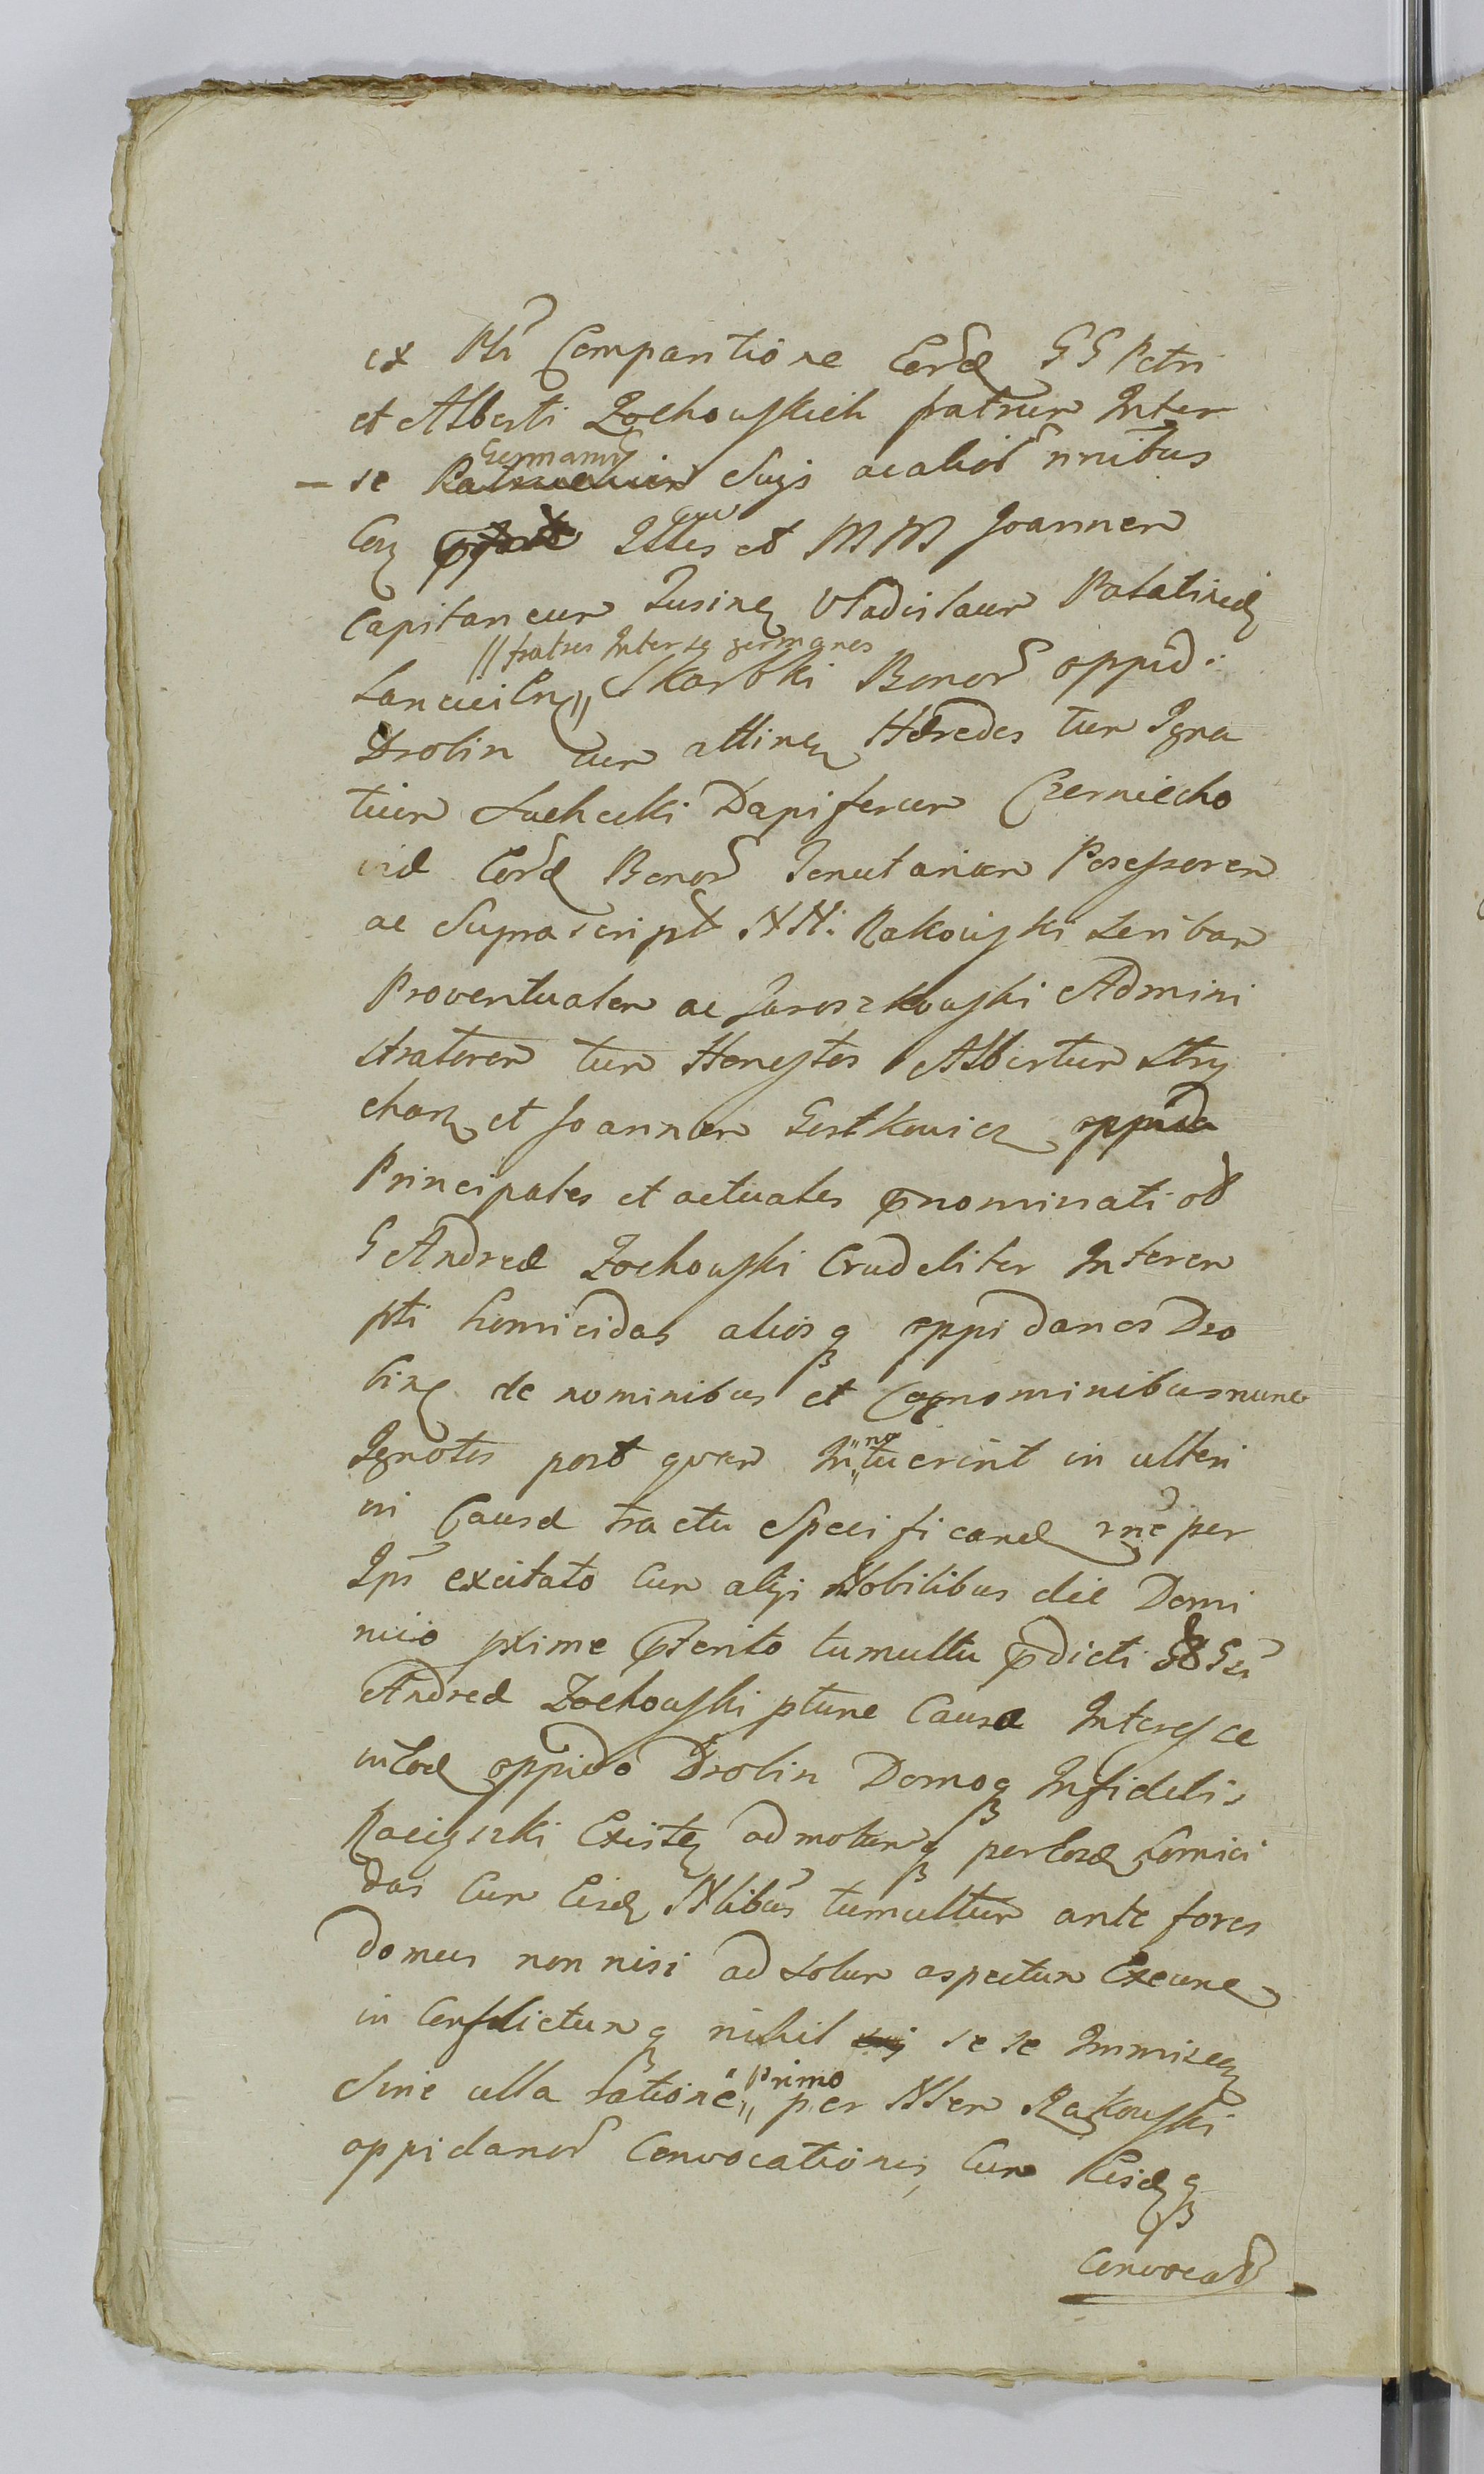 ex Pti Comparitione Eord GG Petri
et Alberti Zochowskich fratrum Inter
Germanor
— se Suis ac alior nnibus
cum
Con Illes et MM Joannem
Capitaneum Susinen Vladislaum Palatinid
// fratres Inter se germanos
Lancicien // Skarbki Bonor oppid:
Drobin cum attinen Hæredes tum Igna
tium Suchecki Dapiferum Czerniecho
viæ Eord Bonor Tenutarium Possessorem
ac Suprascript NN: Rakowski Scribam
Proventualem ac Jaroszkowski Admini
stratorem tum Honestos Albertum Stry
charz et Joannem Gostkowicz
Principales et actuales pnominati ol
G Andreæ Zochowski Crudeliter Interem
pti homicidas aliosq oppidanos Dro
binen de nominibus et Cognominibus nunc
Ignotos post quam Intuerint in ulteri
"no"
ori Causæ tractu Specificand rne per
Ips excitato cum alijs Nobilibus die Domi
nico pxime pterito tumultu pdicti Gsi
Andreæ Zochowski ptunc Causa Interesse
in eod oppido Drobin Domoq Infidelis
Raciązki Existen ad motumq per eosd homici
das Cum Eisd Nlibus tumultum ante fores
domus non nisi ad solum aspectum Exeunt
in Conflictumq nihil se se Immiscen
Primo
Sine ulla ratione // per Nlem Rakowski
oppidanor Convocationis, Cum Eisdq
Convocat